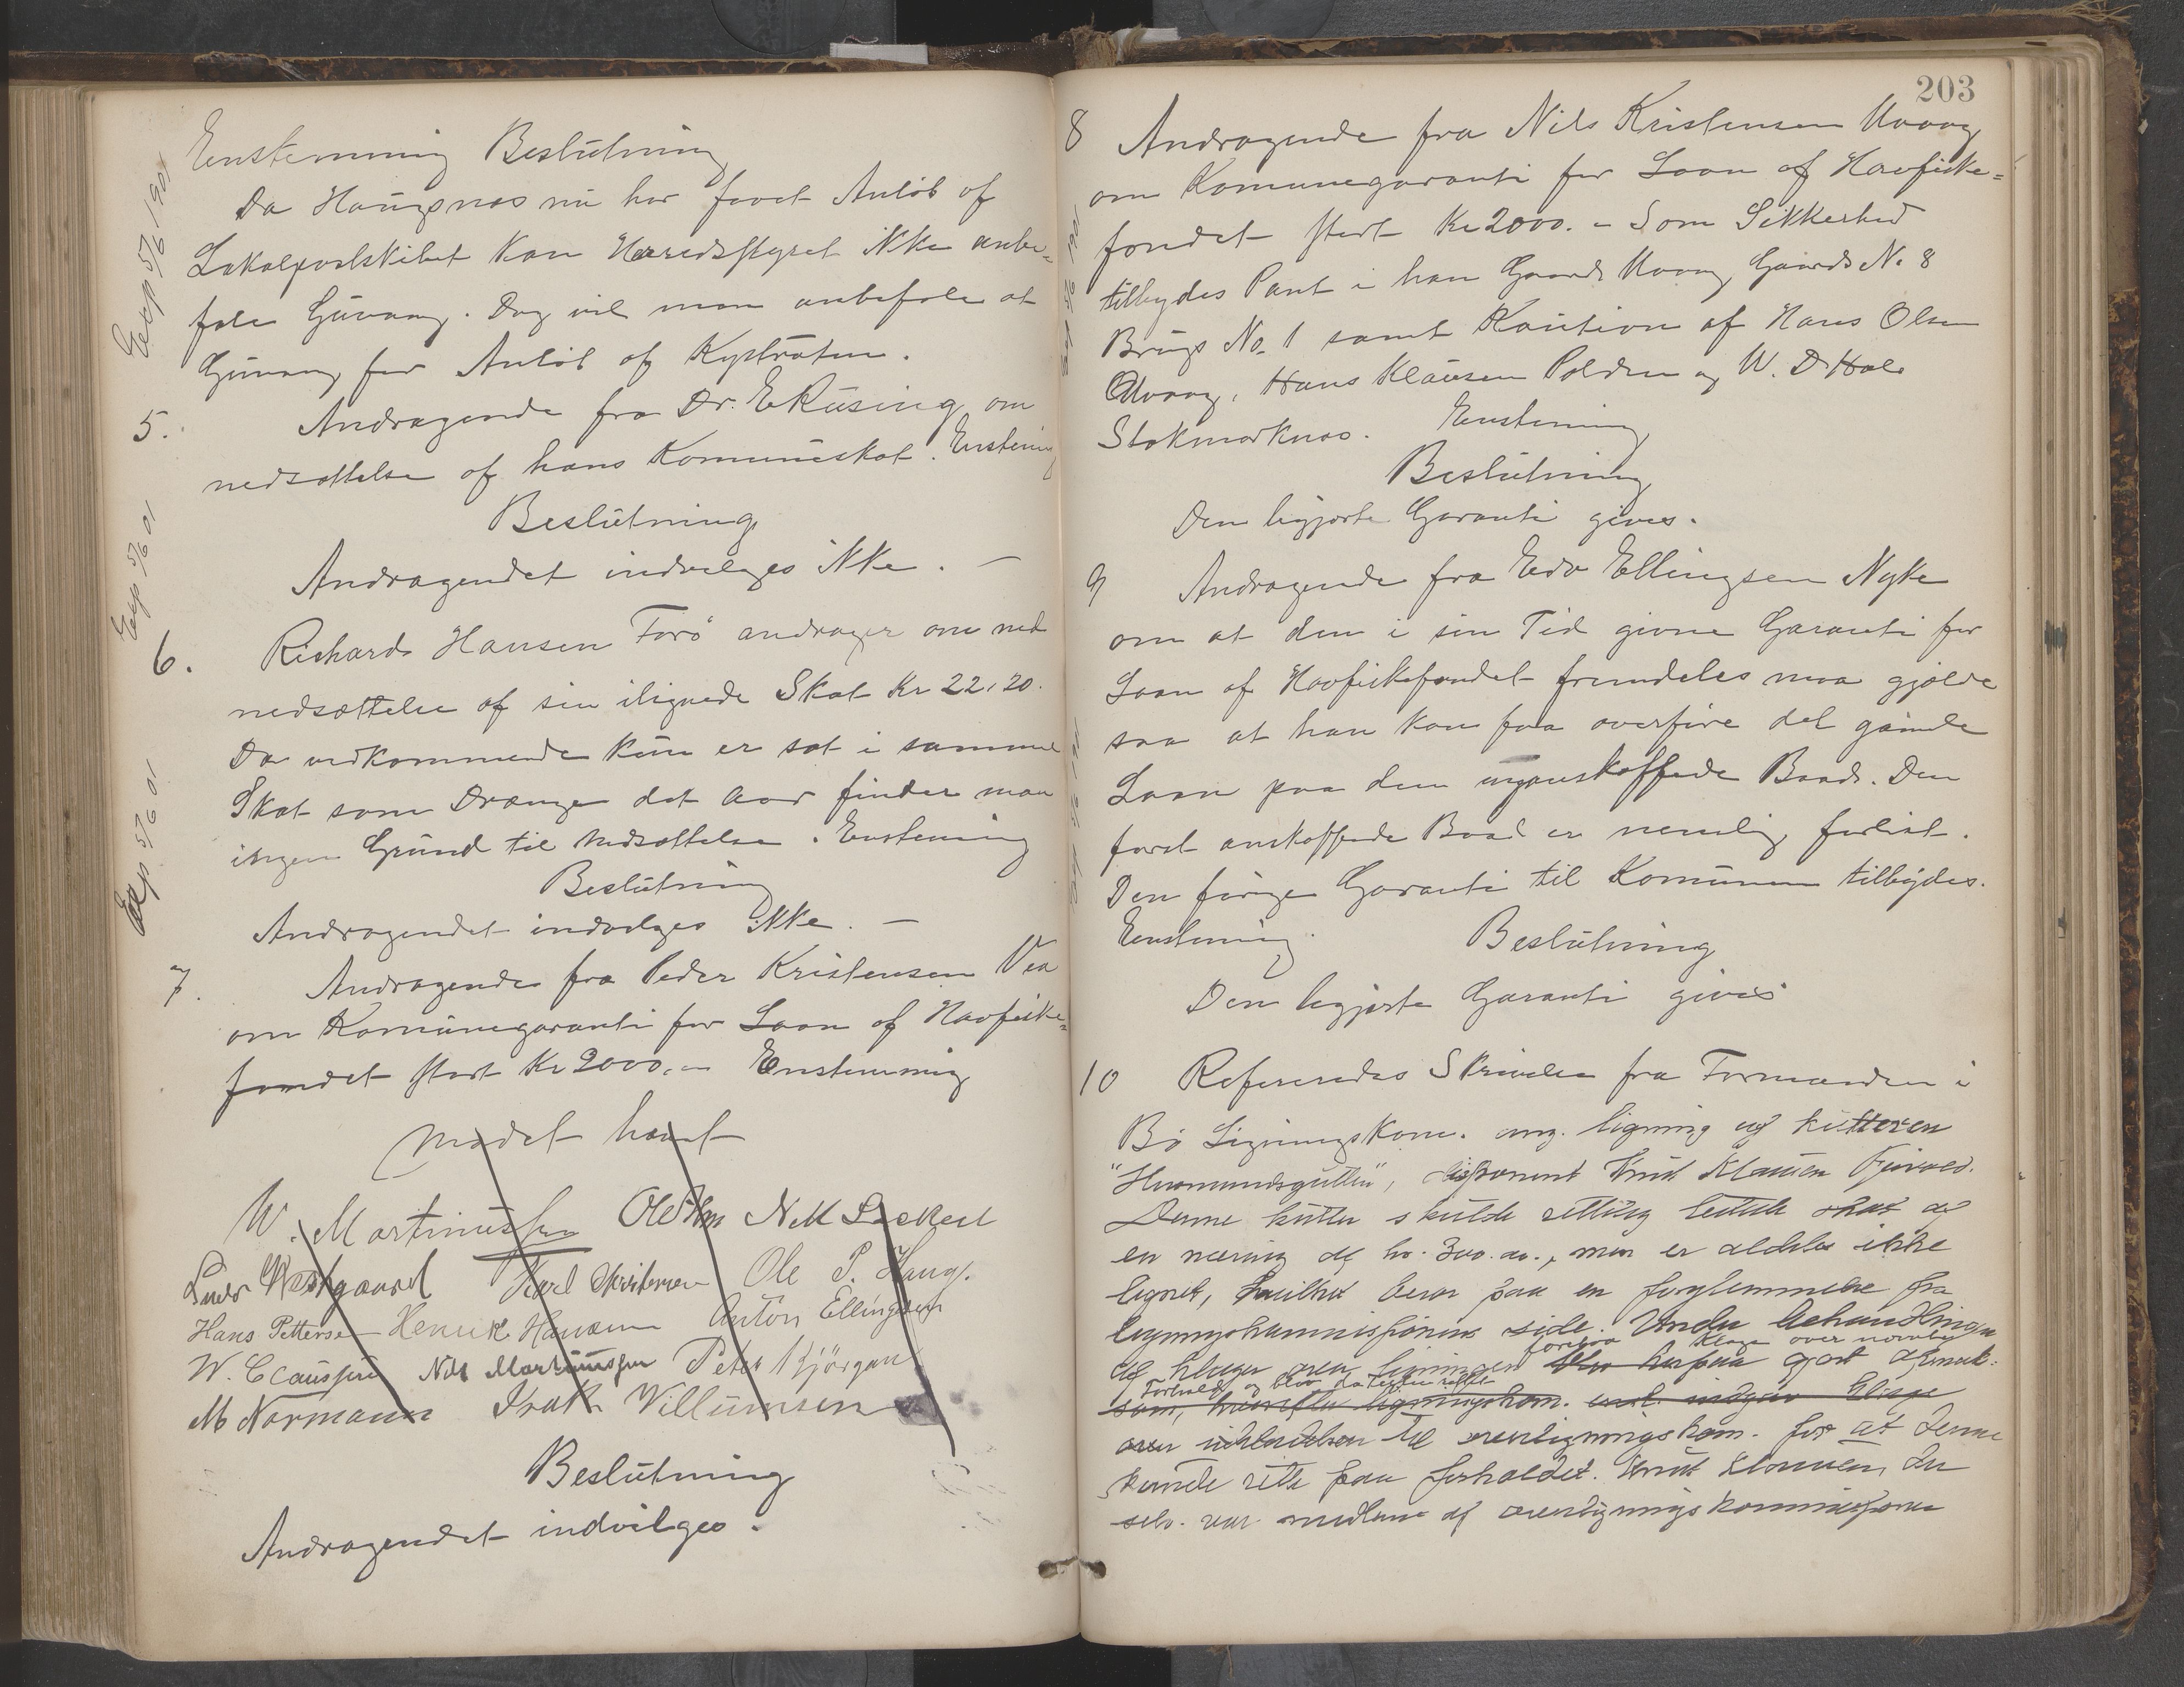 Enstemmig Beslutning
Da Haugsnes nu har faaet Anløb af
Lokalpostskibet kan Herredsstyret ikke anbe=
fale Guvaag. Dog vil man anbefale at
Guvaag faar Anløb af Kystruten.
5. Andragende fra Dr. E Rusing om
nedsættelse af hans Komuneskat. Enstemig
Beslutning
Andragendet indvilges ikke. —
6. Richard Hansen Forø andrager om ned
nedsættelse af sin ilignede Skat Kr 22,20.
Da vedkommende kun er sat i samme
Skat som Drænge det Aar finder man
ingen Grund til Nedsættelse. Enstemig
Beslutning
Andragendet indvilges ikke. —
7. Andragende fra Peder Kristensen Vea
om Komunegaranti for Laan af Havfiske=
fondet stort Kr 2000,- Enstemmig
Mødet hævet
W. Martinussen Ole Olsen N M
Peder Vestgaard Karl Christensen Ole P. Haugs.
Hans Pettersen Henrik Hansen Anton Ellingsen
W. Claussen Nils Martinussen Peter Kjørgan
M Normann Irak Villumsen
Beslutning
Andragendet indvilges.
Exp 5/6 1901
Exp 5/6 01
Exp 5/6 01
203
8 Andragende fra Nils Kristensen Uvaag
om Komunegaranti for Laan af Havfiske=
fondet stort Kr 2000.- Som Sikkerhed
tilbydes Pant i han Gaard Uvaag Gaards No 8
Brugs No. 1 samt Kaution af Hans Olsen
Uvaag, Hans Klausen Polden og W. D Hals
Stokmarknes. Enstemig
Beslutning
Den begjærte Garanti gives.
9 Andragende fra Edv Ellingsen Nyke
om at den i sin Tid givne Garanti for
Laan af Havfiskefondet fremdeles maa gjælde
saa at han kan faa overføre det gamle
Laan paa den nyanskaffede Baad. Den
først anskaffede Baad er nemlig forlist.
Den førige Garanti til Komunen tilbydes.
Enstemig. Beslutning
Den begjærte Garanti gives
10 Refereredes Skrivelse fra Formanden i
Bø Ligningskom. ang. ligning af kutteren
"Hermundsgutten", disponent Knut Klausen
Denne kutter skulde rettelig lettede skat af
en næring af kr. 300.00., men er aldeles ikke
lignet, hvilket beror paa en forglemmelse fra
ligningskommissionens side. Under behandlingen
af klager over ligningen blev herpaa gjort opmærk:
foretoges Klage over nævnte
Forhold og blev da
som, ligningskom. indgav Klage
over udeladelsen til overligningskom. for at denne
kunde rette paa forholdet. Knut Klausen, der
selv var medlem af overligningskommissionen